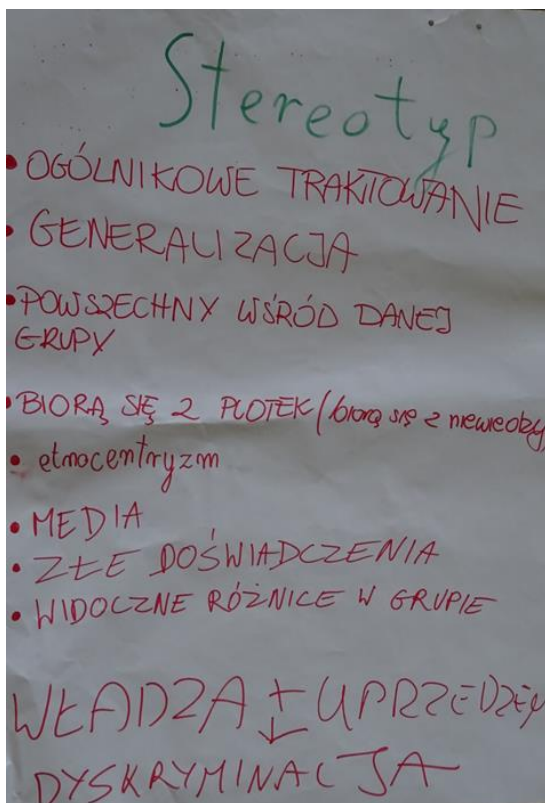 Stereotyp
• OGÓLNIKOWE TRAKTOWANIE
• GENERALIZACJA
• POWSZECHNY WŚRÓD DANEJ
GRUPY
• BIORĄ SIĘ Z PLOTEK (biorą się z niewiedzy)
• etnocentryzm
• MEDIA
• ZŁE DOŚWIADCZENIA
• WIDOCZNE RÓŻNICE W GRUPIE
WŁADZA + UPRZEDZEN
↓
DYSKRYMINACJA